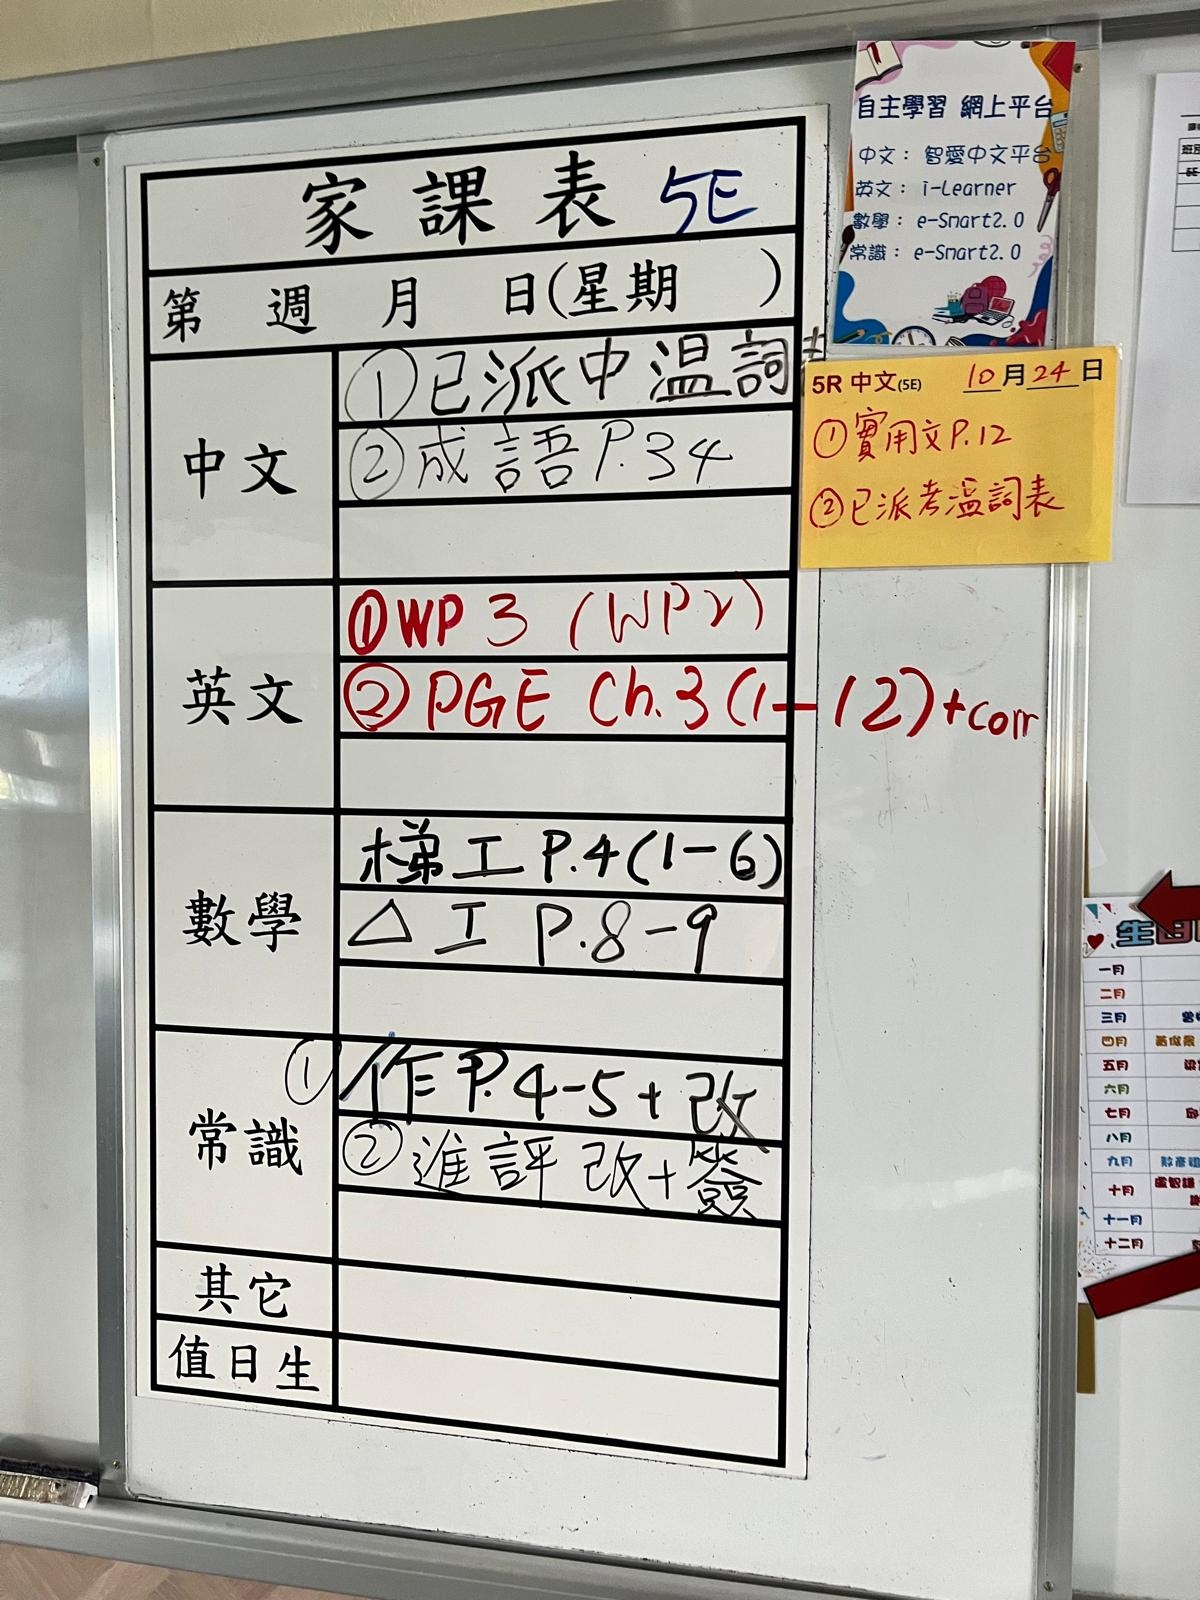 家課表 5E
第 週 月 日(星期 )
中文
①已派中溫詞表
②成語P.34
英文
①WP 3 (WP2)
②PGE Ch.3(1-12)+corr
數學
梯工P.4(1-6)
△工 P.8-9
常識
①作P.4-5+改
②進評改+簽
其它
值日生
自主學習 網上平台
中文：智愛中文平台
英文：i-Learner
數學：e-Smart2.0
常識：e-Smart2.0
5R 中文(5E) 10月24日
①實用文P.12
②已派考溫詞表
生日
一月
二月
三月
四月
五月
六月
七月
八月
九月
十月
十一月
十二月